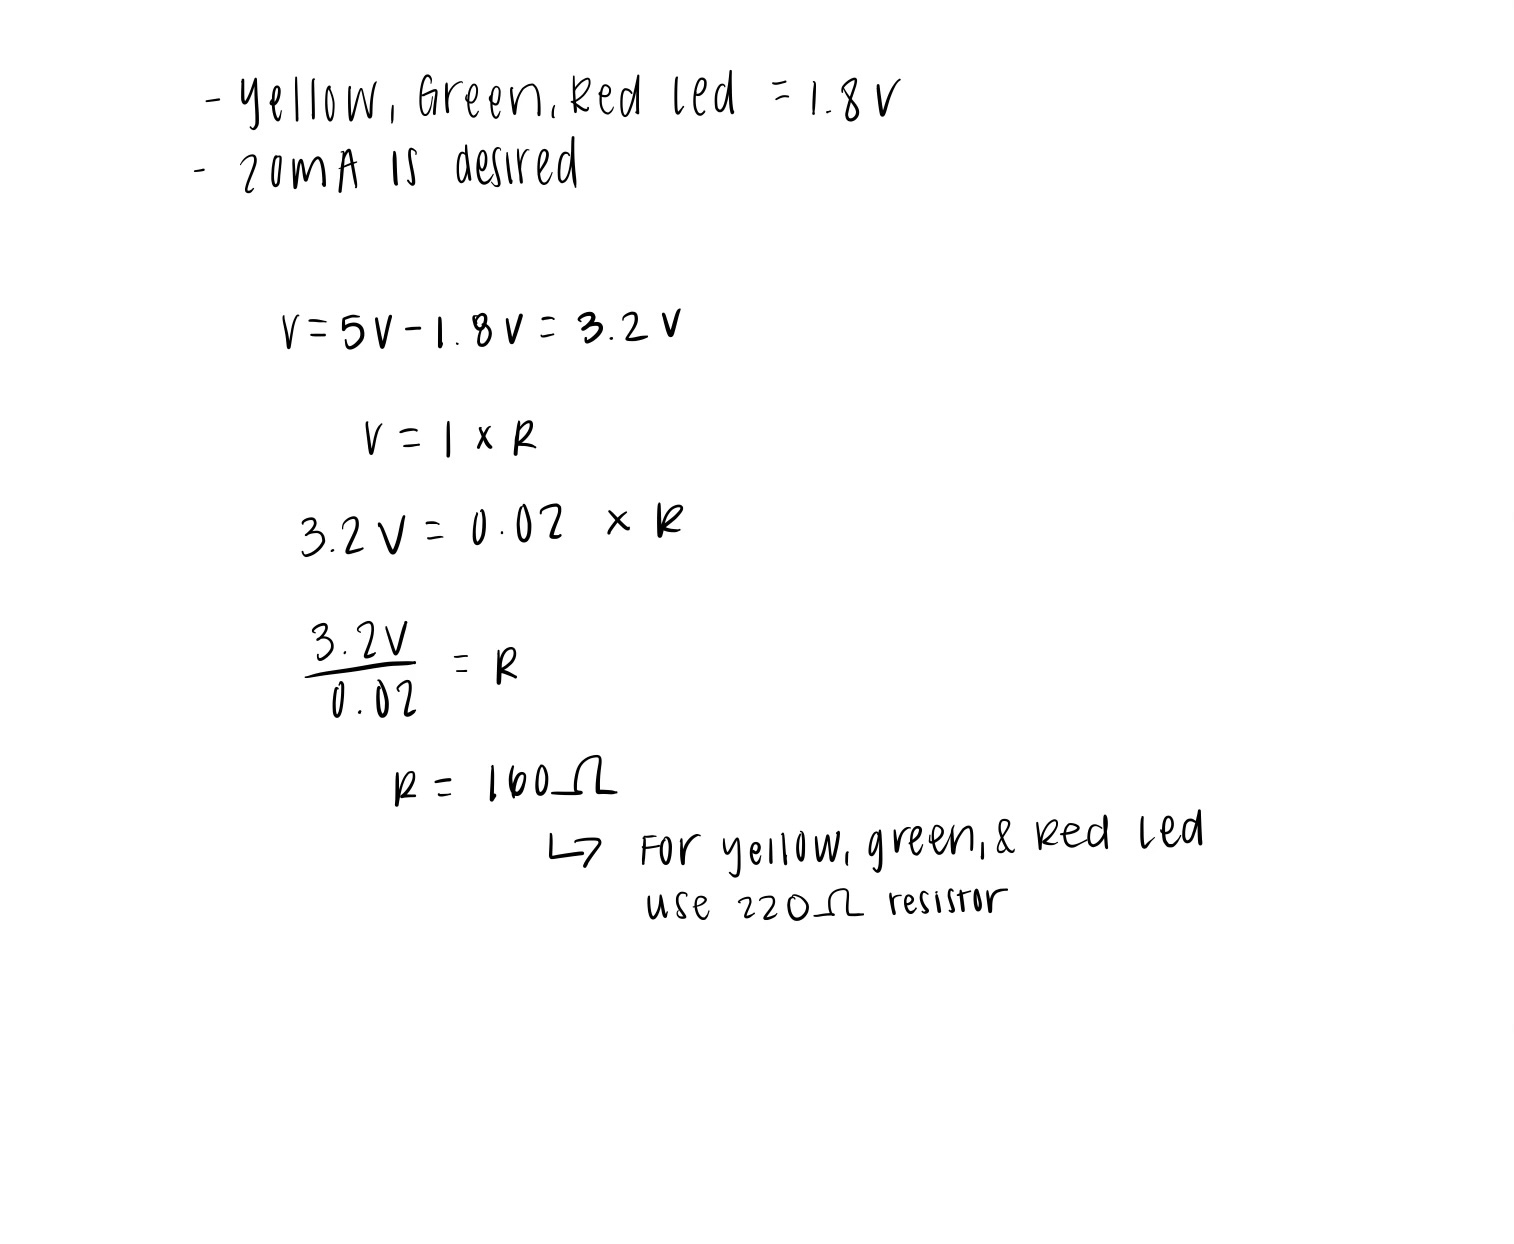 - Yellow, Green, Red led = 1.8 V
- 20mA is desired
V = 5V - 1.8V = 3.2 V
V = I x R
3.2V = 0.02 x R
3.2V
0.02 = R
R = 160Ω
↳ For yellow, green, & Red led
use 220Ω resistor